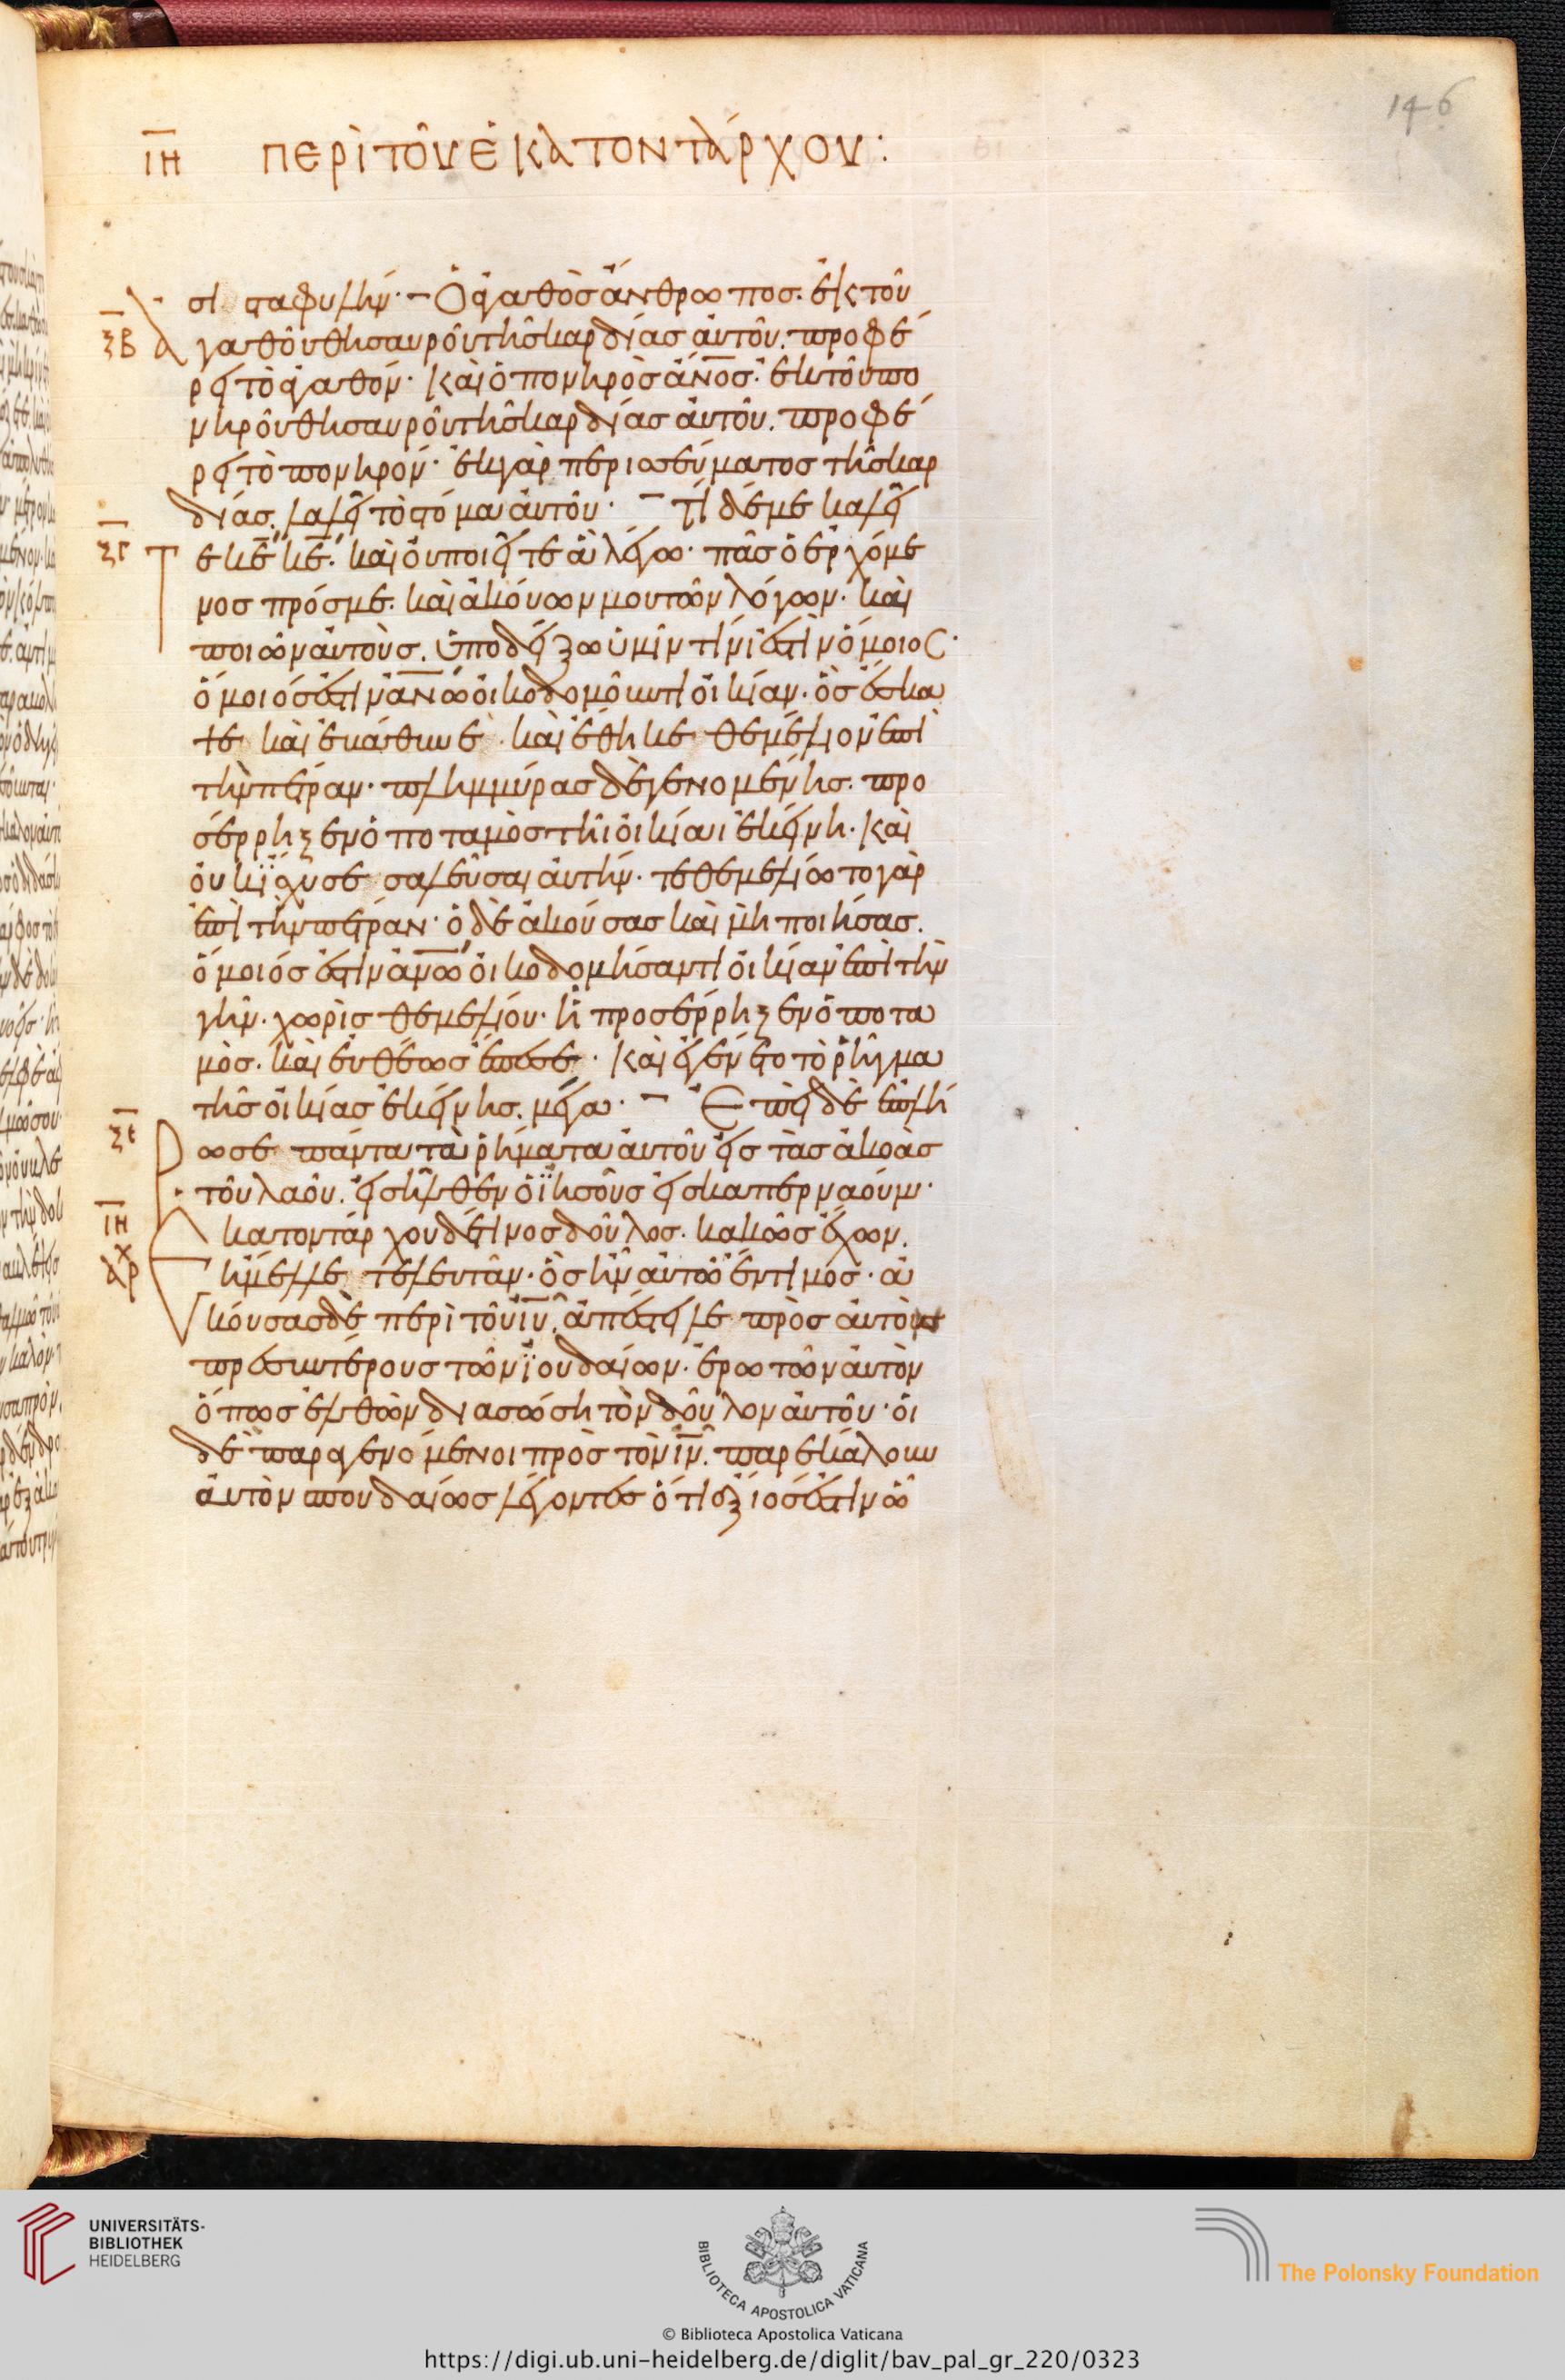 146
ιη περὶ τοῦ ἑκατοντάρχου:
σι σταφυλήν· Ὁ ἀγαθὸς ἄνθρωπος. ἐκ τοῦ
ξβ ἀγαθοῦ θησαυροῦ τῆς καρδίας αὐτοῦ. προφέ
ρει τὸ ἀγαθόν· καὶ ὁ πονηρὸς ἄνος. ἐκ τοῦ πο
νηροῦ θησαυροῦ τῆς καρδίας αὐτοῦ. προφέ
ρει τὸ πονηρόν· ἐκ γὰρ περισσεύματος τῆς καρ
δίας. λαλεῖ τὸ στόμα αὐτοῦ· Τί δέ με καλεῖ
ξγ τε κε κε. καὶ οὐ ποιεῖτε ἃ λέγω· πᾶς ὁ ἐρχόμε
νος πρός με. καὶ ἀκούων μου τῶν λόγων. καὶ
ποιῶν αὐτοὺς. ὑποδείξω ὑμῖν τίνι ἐστὶν ὅμοιος·
ὅμοιός ἐστιν ἀνῳ οἰκοδομοῦντι οἰκίαν. ὃς ἔσκα
ψε καὶ ἐβάθυνε. καὶ ἔθηκε θεμέλιον ἐπὶ
τὴν πέτραν· πλημμύρας δὲ γενομένης. προ
σέρρηξεν ὁ ποταμὸς τῆι οἰκίαι ἐκείνη· καὶ
οὐκ ἴσχυσε σαλεῦσαι αὐτήν· τεθεμελίωτο γὰρ
ἐπὶ τὴν πέτραν· ὁ δὲ ἀκούσας καὶ μὴ ποιήσας.
ὅμοιός ἐστιν ἀνῳ οἰκοδομήσαντι οἰκίαν ἐπὶ τὴν
γῆν. χωρὶς θεμελίου· ἧ προσέρρηξεν ὁ ποτα
μὸς. καὶ εὐθέως ἔπεσε· καὶ ἐγένετο τὸ ῥῆγμα
τῆς οἰκίας ἐκείνης. μέγα· Ἐπεὶ δὲ ἐπλή
ξε ρωσε πάντα τὰ ῥήματα αὐτοῦ εἰς τὰς ἀκοὰς
τοῦ λαοῦ. εἰσῆλθεν ὁ ἰησοῦς εἰς καπερναούμ·
ιη Ἑκατοντάρχου δέ τινος δοῦλος. κακῶς ἔχων.
αρχ ἤμελλε τελευτᾶν· ὃς ἦν αὐτῷ ἔντιμος· ἀ
κούσας δὲ περὶ τοῦ ιυ. ἀπέστειλε πρὸς αὐτὸν
πρεσβυτέρους τῶν ἰουδαίων. ἐρωτῶν αὐτὸν
ὅπως ἐλθὼν διασώση τὸν δοῦλον αὐτοῦ· οἱ
δὲ παραγενόμενοι πρὸς τὸν ιν. παρεκάλουν
αὐτὸν σπουδαίως λέγοντες ὅτι ἄξιος ἐστιν ᾧ
UNIVERSITÄTS-
BIBLIOTHEK
HEIDELBERG
BIBLIOTECA APOSTOLICA VATICANA
The Polonsky Foundation
© Biblioteca Apostolica Vaticana
https://digi.ub.uni-heidelberg.de/diglit/bav_pal_gr_220/0323